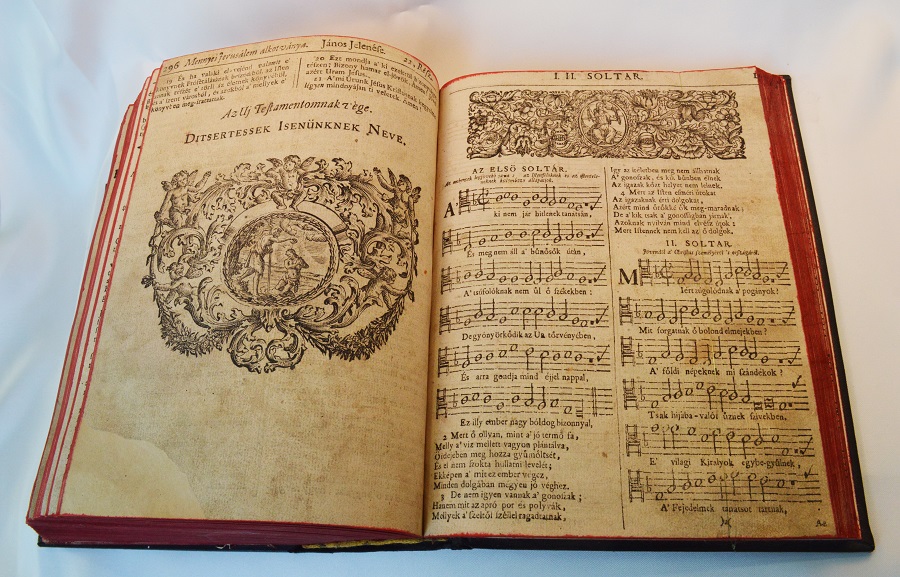 296 Mennyei Jerusálem alkotványa. János Jelenése. 22. Rész.
19 És ha valaki el-véjend valamit e'
könyvnek Prófétálásának beszédiből, az Isten
annak részét el' törli az életnek könyvéből,
és a' szent városból, és azokból a' mellyek e'
könyvben meg-írattanak.
20 Ezt mondja a' ki ezekről
részen; Bizony hamar el-jövök, Amen.
azért Uram Jésus.
21 A' mi Urunk Jésus Kristusnak
légyen mindnyájan ti veletek, Amen.
Az Uj Testamentomnak vége.
DITSERTESSEK ISENÜNKNEK NEVE.
I. II. SOLTAR.
AZ ELSÖ SOLTAR.
A' ki nem jár hitlenek tanatsán,
És meg nem áll a' bűnösök útán,
A' tsúfolóknak nem űl ő székekben:
De gyönyörködik az Ur törvényében,
És arra gondja mind éjjel nappal,
Ez illy ember nagy bóldog bizonnyal,
2 Mert ő ollyan, mint a' jó termő fa,
Melly a' viz mellett vagyon plántálva,
Ő idejében meg hozza gyümöltsét,
És el nem szokta hullatni levelét;
Ekképen a' mit ez ember végez,
Minden dolgában megyen jó véghez.
3 De nem igyen vannak a' gonoszak;
Hanem mint az apró por és polyvák,
Mellyek a' széltől széllel ragadtatnak,
Igy az itéletben meg nem állhatnak
A' gonoszak, és kik bűnben élnek
Az igazak közt helyet nem lelnek.
4 Mert az Isten esméri útokat
Az igazaknak érti dolgokat,
Azért mind örökké ők meg-maradnak;
De a' kik tsak a' gonoszságban járnak,
Azoknak nyilván mind elvész útok;
Mert Istennek nem kell az ő dolgok.
II. SOLTAR.
Miért zúgolódnak a' pogányok?
Mit forgatnak ő bolond elméjekben?
A' földi népeknek mi szándékok?
Tsak hijába-valót űznek szivekben.
E' világi Királyok egybe-gyűlnek,
A' Fejedelmek tanátsot tartnak,